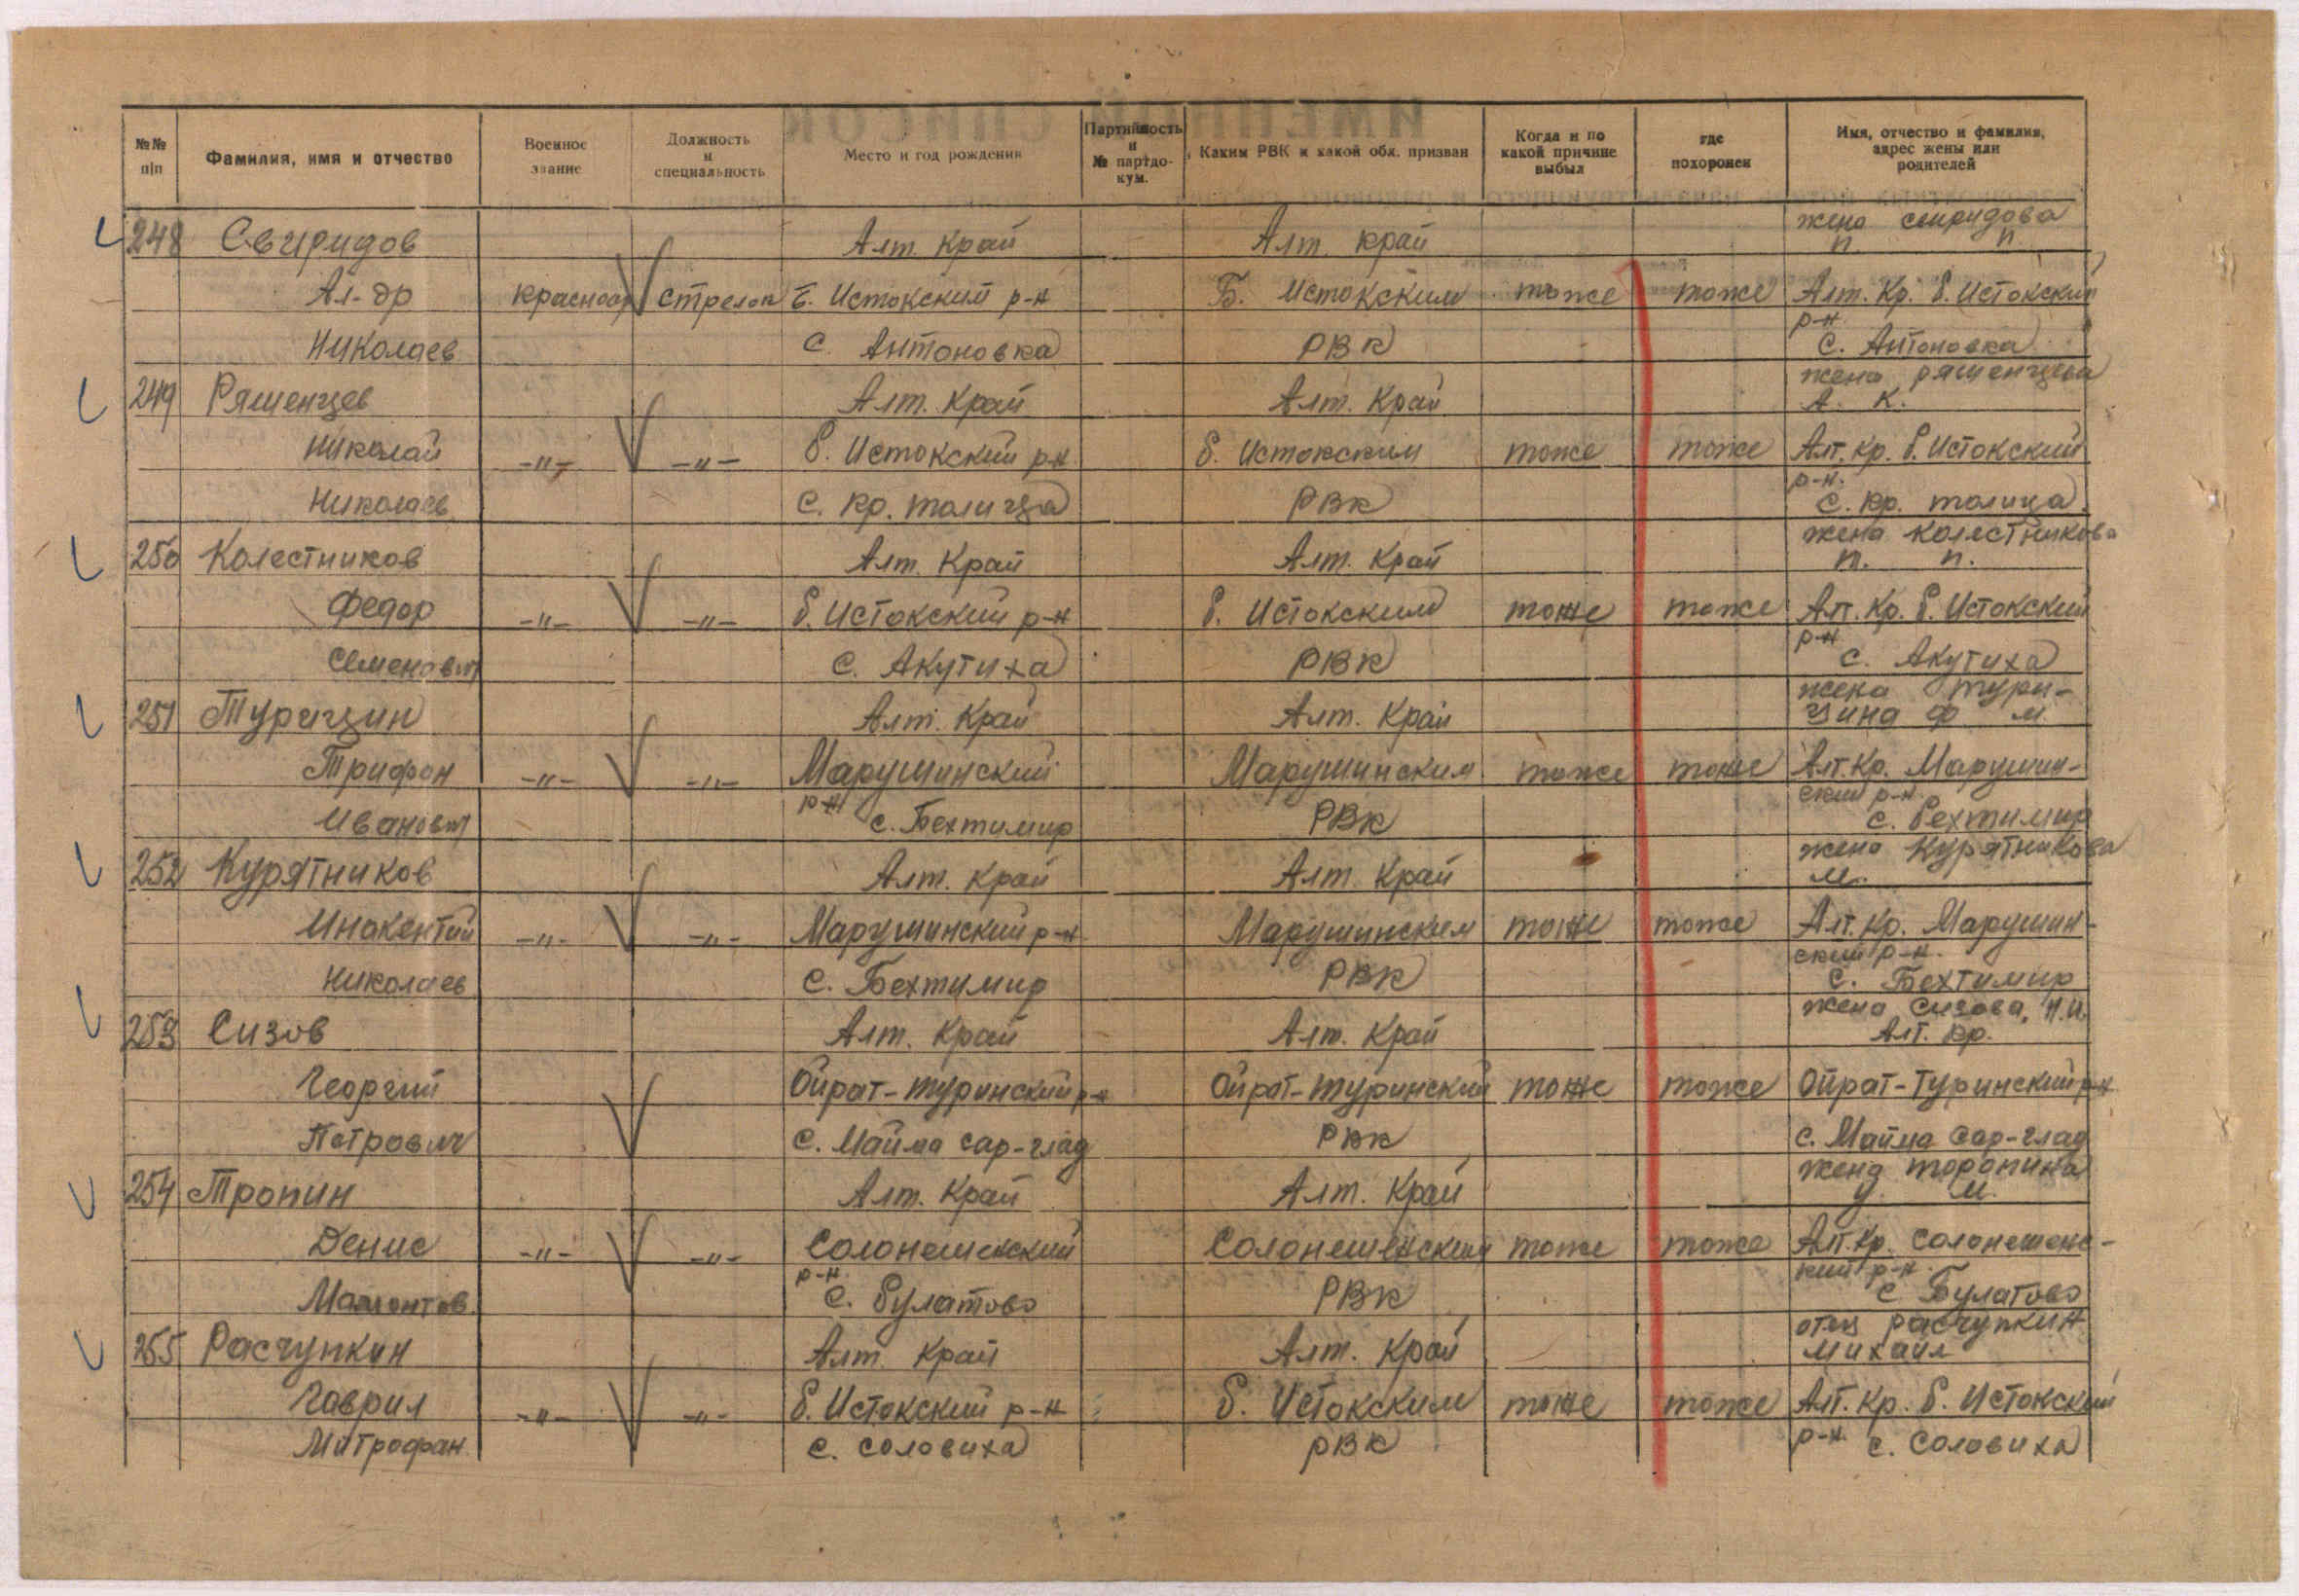 №№ п/п
Фамилия, имя и отчество
Военное звание
Должность и специальность
Место и год рождения
Партийность и № партдокум.
Каким РВК и какой обл. призван
Когда и по какой причине выбыл
где похоронен
Имя, отчество и фамилия, адрес жены или родителей
248 Свиридов Алт. край Алт. край жена свиридова п. п.
Ал-др красноар стрелок Б. Истокский р-н Б. Истокским тоже тоже Алт. Кр. Б. Истокский р-н
Николаев с. Антоновка РВК с. Антоновка
249 Ряшенцев Алт. Край Алт. Край жена ряшенцева А. К.
Николай -"- -"- Б. Истокский р-н Б. Истокским тоже тоже Алт. Кр. Б. Истокский р-н.
Николаев с. кр. талица РВК с. кр. талица
250 Колестников Алт. Край Алт. Край жена Колестникова п. п.
Федор -"- -"- Б. Истокский р-н Б. Истокским тоже тоже Алт. Кр. Б. Истокский р-н
Семенович с. Акутиха РВК с. Акутиха
251 Турицин Алт. Край Алт. Край жена тури-
цина ф м
Трифон -"- -"- Марушинский Марушинским тоже тоже Алт. Кр. Марушин-
Иванович р-н с. Бехтимир РВК ский р-н. с. Бехтимир
252 Курятников Алт. край Алт. Край жена Курятникова м.
Инокентий -"- -"- Марушинский р-н Марушинским тоже тоже Алт. Кр. Марушин-
Николаев с. Бехтимир РВК ский р-н. с. Бехтимир
253 Сизов Алт. Край Алт. Край жена сизова, Н.И. Алт. кр.
Георгий Ойрат-туринский р-н Ойрат-туринский тоже тоже Ойрат-Туринский р-н
Петрович с. Майма сар-глад РВК с. Майма сар-глад
254 Тропин Алт. Край Алт. Край жена торопина У. М.
Денис -"- -"- Солонешенский Солонешенским тоже тоже Алт. Кр. солонешенс-
Мамонтов. р-н. с. Булатово РВК кий р-н. с Булатово
255 Расчупкин Алт. Край Алт. Край отец расчупкин михаил
Гаврил -"- -"- Б. Истокский р-н Б. Истокским тоже тоже Алт. Кр. Б. Истокский
Митрофан. с. соловиха РВК р-н. с. соловиха